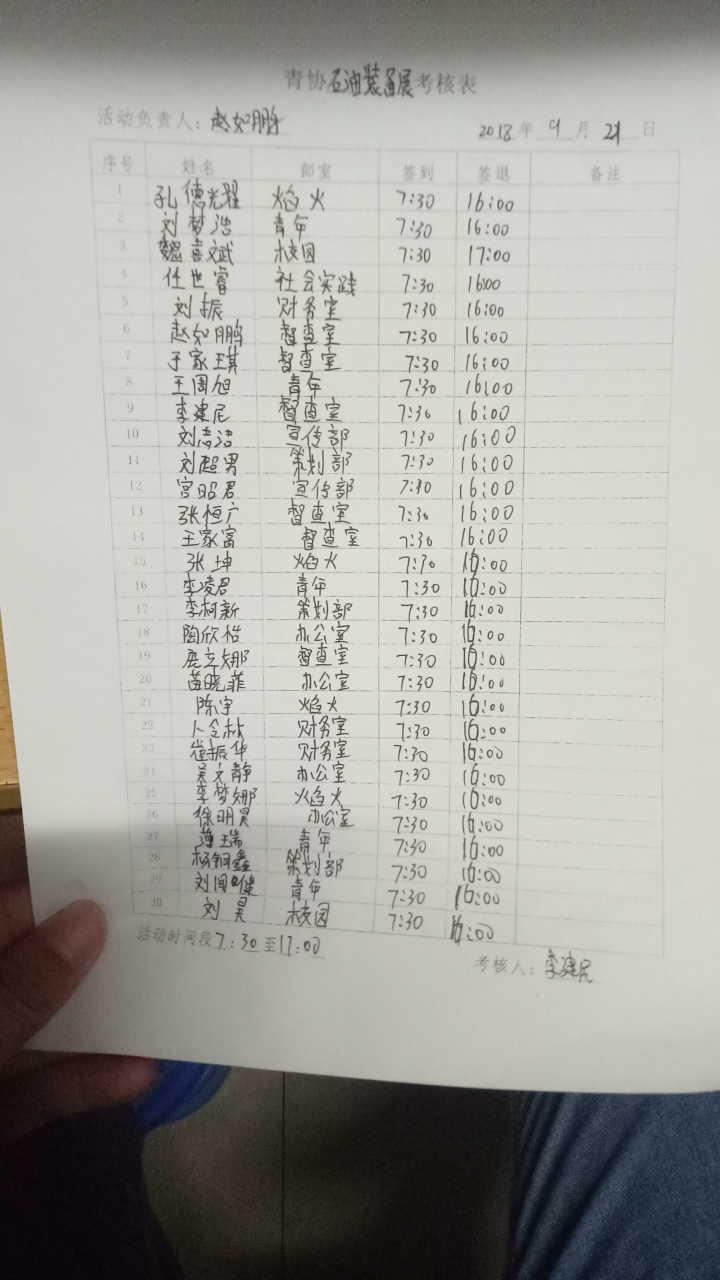 青协石油装备展考核表
活动负责人：赵如鹏 2018年9月21日
序号 姓名 部室 签到 签退 备注
1 孔德光耀 焰火 7:30 16:00
2 刘梦浩 青年 7:30 16:00
3 魏喜斌 校园 7:30 17:00
4 任世睿 社会实践 7:30 16:00
5 刘振 财务室 7:30 16:00
6 赵如鹏 督查室 7:30 16:00
7 于家琪 督查室 7:30 16:00
8 王周旭 青年 7:30 16:00
9 李建尼 督查室 7:30 16:00
10 刘志洁 宣传部 7:30 16:00
11 刘超男 策划部 7:30 16:00
12 宫昭君 宣传部 7:30 16:00
13 张恒广 督查室 7:30 16:00
14 王家富 督查室 7:30 16:00
15 张坤 焰火 7:30 16:00
16 李凌君 青年 7:30 16:00
17 李柯新 策划部 7:30 16:00
18 陶欣怡 办公室 7:30 16:00
19 娜 督查室 7:30 16:00
20 苗晓菲 办公室 7:30 16:00
21 陈宇 焰火 7:30 16:00
22 卜令 财务室 7:30 16:00
23 崔振华 财务室 7:30 16:00
24 吴文静 办公室 7:30 16:00
25 李梦娜 焰火 7:30 16:00
26 徐明昊 办公室 7:30 16:00
27 瑞 青年 7:30 16:00
28 杨钢鑫 策划部 7:30 16:00
29 刘健 青年 7:30 16:00
30 刘昊 校园 7:30 16:00
活动时间段7:30至17:00
考核人：李建尼